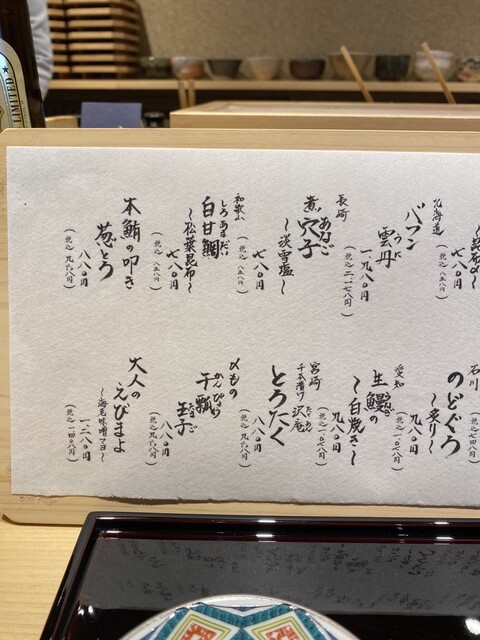 〜昆布〆〜
七八〇円
(税込 八五八円)
北海道
バフン
雲丹
うに
一、九八〇円
(税込 二一七八円)
長崎
煮穴子
あなご
〜淡雪塩〜
七八〇円
(税込 八五八円)
和歌山
白甘鯛
しろあまだい
〜松葉昆布〜
七八〇円
(税込 八五八円)
本鮪の叩き
葱とろ
八八〇円
(税込 九六八円)
石川
のどぐろ
〜炙り〜
愛知
生鰻の
〜白焼き〜
九八〇円
(税込 一〇七八円)
宮崎
千本漬け沢庵
たくあん
とろたく
八八〇円
(税込 九六八円)
〆もの
干瓢
かんぴょう
玉子
たまご
八八〇円
(税込 九六八円)
大人の
えびまよ
〜海老味噌マヨ〜
一、二八〇円
(税込 一四〇八円)